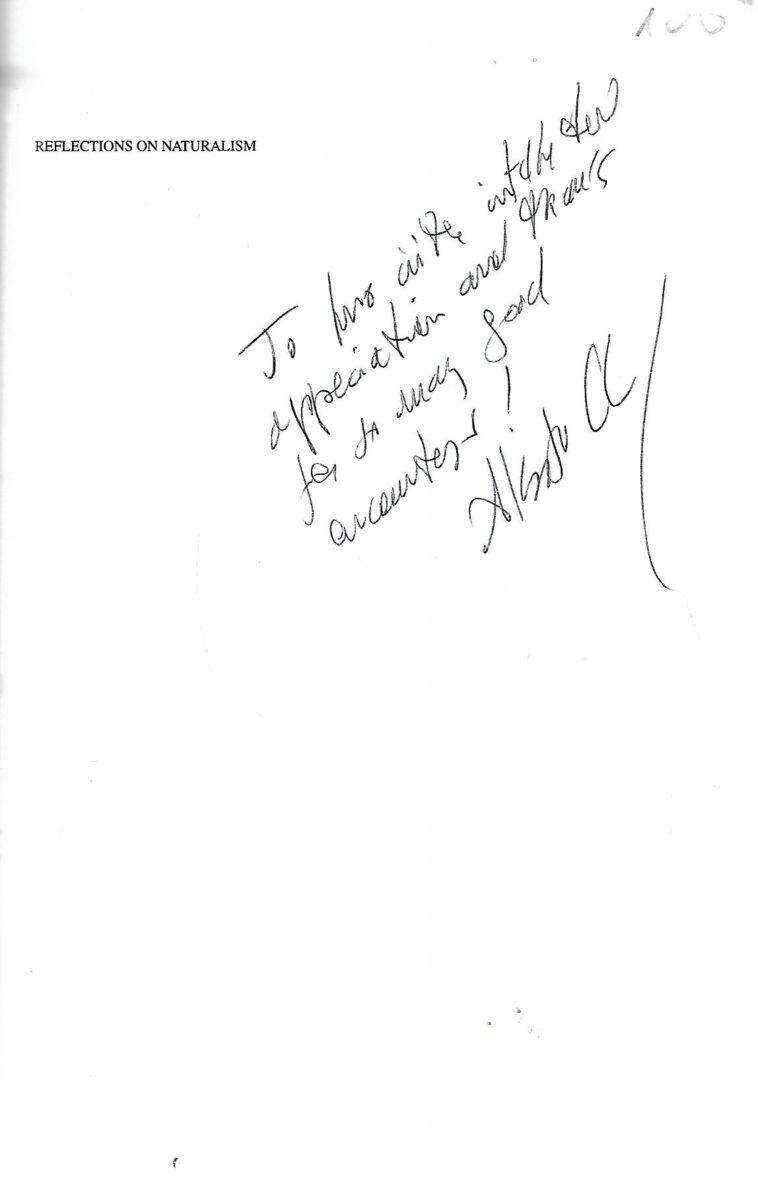 100
REFLECTIONS ON NATURALISM
To with
appreciation and thanks
for so many good
encounters!